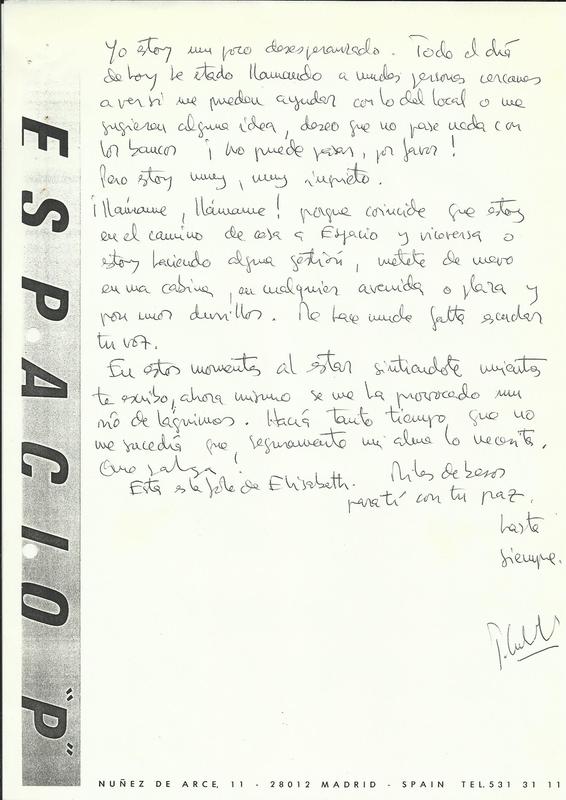 ESPACIO "P"
Yo estoy un poco desesperanzado. Todo el día
de hoy he estado llamando a muchas personas cercanas
a ver si me pueden ayudar con lo del local o me
sugieren alguna idea, deseo que no pase nada con
los bancos ¡no puede pasar, por favor!
Pero estoy muy, muy inquieto.
¡llámame, llámame! porque coincide que estoy
en el camino de casa a Espacio y viceversa o
estoy haciendo alguna gestión, métete de nuevo
en una cabina, en cualquier avenida o plaza y
pon unos durillos. Me hace mucha falta escuchar
tu voz.
En estos momentos al estar sintiéndote mientras
te escribo, ahora mismo se me ha provocado un
río de lágrimas. Hacía tanto tiempo que no
me sucedía que, seguramente mi alma lo necesita.
¡Que salga!
Esta es la foto de Elisabeth. Miles de besos
para tí con tu paz.
hasta
siempre.
NUÑEZ DE ARCE, 11 - 28012 MADRID - SPAIN TEL. 531 31 11